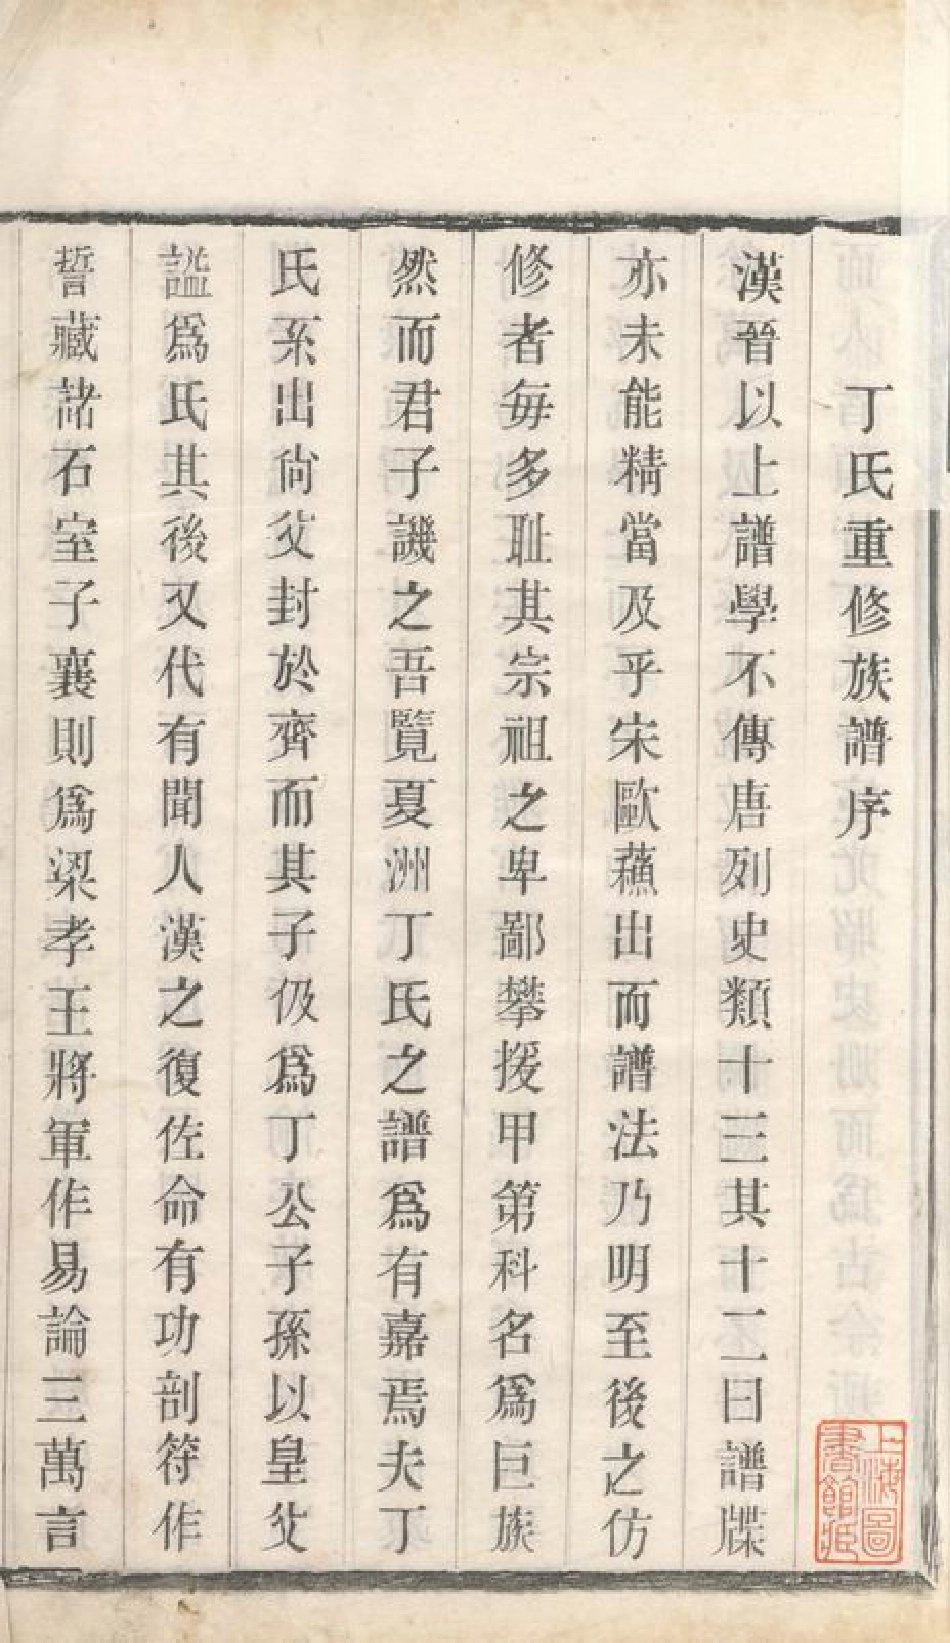 丁氏重修族譜序
漢晉以上譜學不傳唐列史類十三其十二曰譜牒
亦未能精當及乎宋歐蘓出而譜法乃明至後之仿
修者每多耻其宗祖之卑鄙攀援甲第科名爲巨族
然而君子譏之吾覽夏洲丁氏之譜爲有嘉焉夫丁
氏系出尙父封於齊而其子伋爲丁公子孫以皇父
謚爲氏其後又代有聞人漢之復佐命有功剖符作
誓藏諸石室子襄則爲梁孝王將軍作易論三萬言
上海圖
書館藏